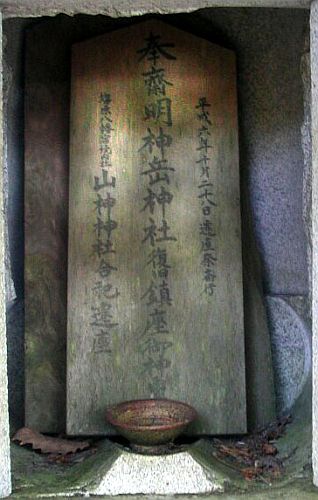 平成六年十月二十八日遷座祭斎行
奉齋明神岳神社復舊鎮座御神
山神神社合祀遷座